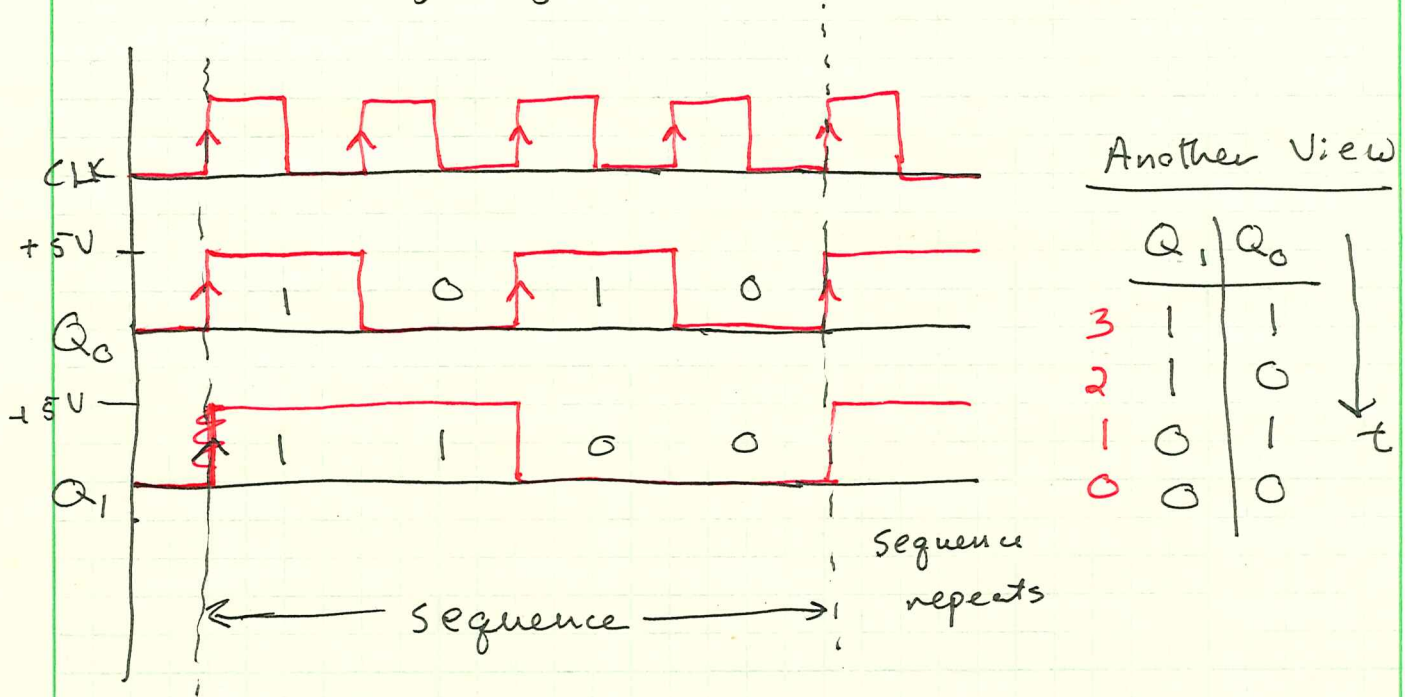 CLK
+5V
1 0 1 0
Q0
+5V
1 1 0 0
Q1
sequence
sequence
repeats
Another View
Q1 Q0
3 1 1
2 1 0
1 0 1
0 0 0
t